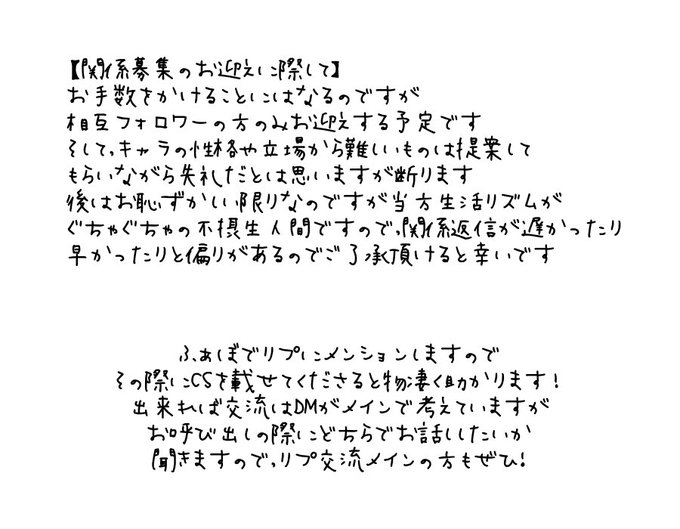 【関係募集のお迎えに際して】
お手数をかけることにはなるのですが
相互フォロワーの方のみお迎えする予定です
そして、キャラの性格や立場から難しいものは提案して
もらいながら失礼だとは思いますが断ります
後はお恥ずかしい限りなのですが当方生活リズムが
ぐちゃぐちゃの不摂生人間ですので、関係返信が遅かったり
早かったりと偏りがあるのでご了承頂けると幸いです
ふぁぼでリプにメンションしますので
その際にCSを載せてくださると物凄く助かります！
出来れば交流はDMがメインで考えていますが
お呼び出しの際にどちらでお話ししたいか
聞きますので、リプ交流メインの方もぜひ！